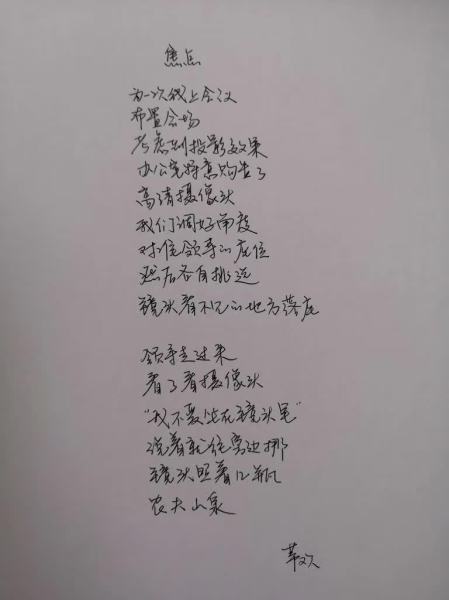 焦点
为一次线上会议
布置会场
考虑到投影效果
办公室特意购置了
高清摄像头
我们调好角度
对准领导的座位
然后各自挑选
镜头看不见的地方落座
领导走过来
看了看摄像头
“我不要坐在镜头里”
说着就往旁边挪
镜头照着几瓶
农夫山泉